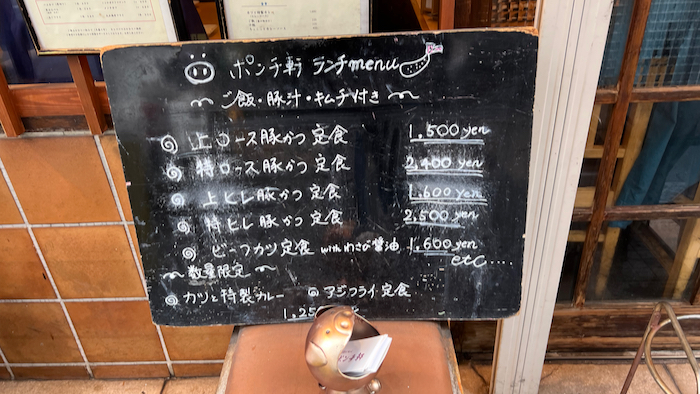 ポンチ軒 ランチmenu
ご飯・豚汁・キムチ付き
上ロース豚かつ定食 1,500 yen
特ロース豚かつ定食 2,400 yen
上ヒレ豚かつ定食 1,600 yen
特ヒレ豚かつ定食 2,500 yen
ビーフカツ定食 withわさび醤油 1,600 yen
etc....
数量限定
カツと特製カレー アジフライ定食